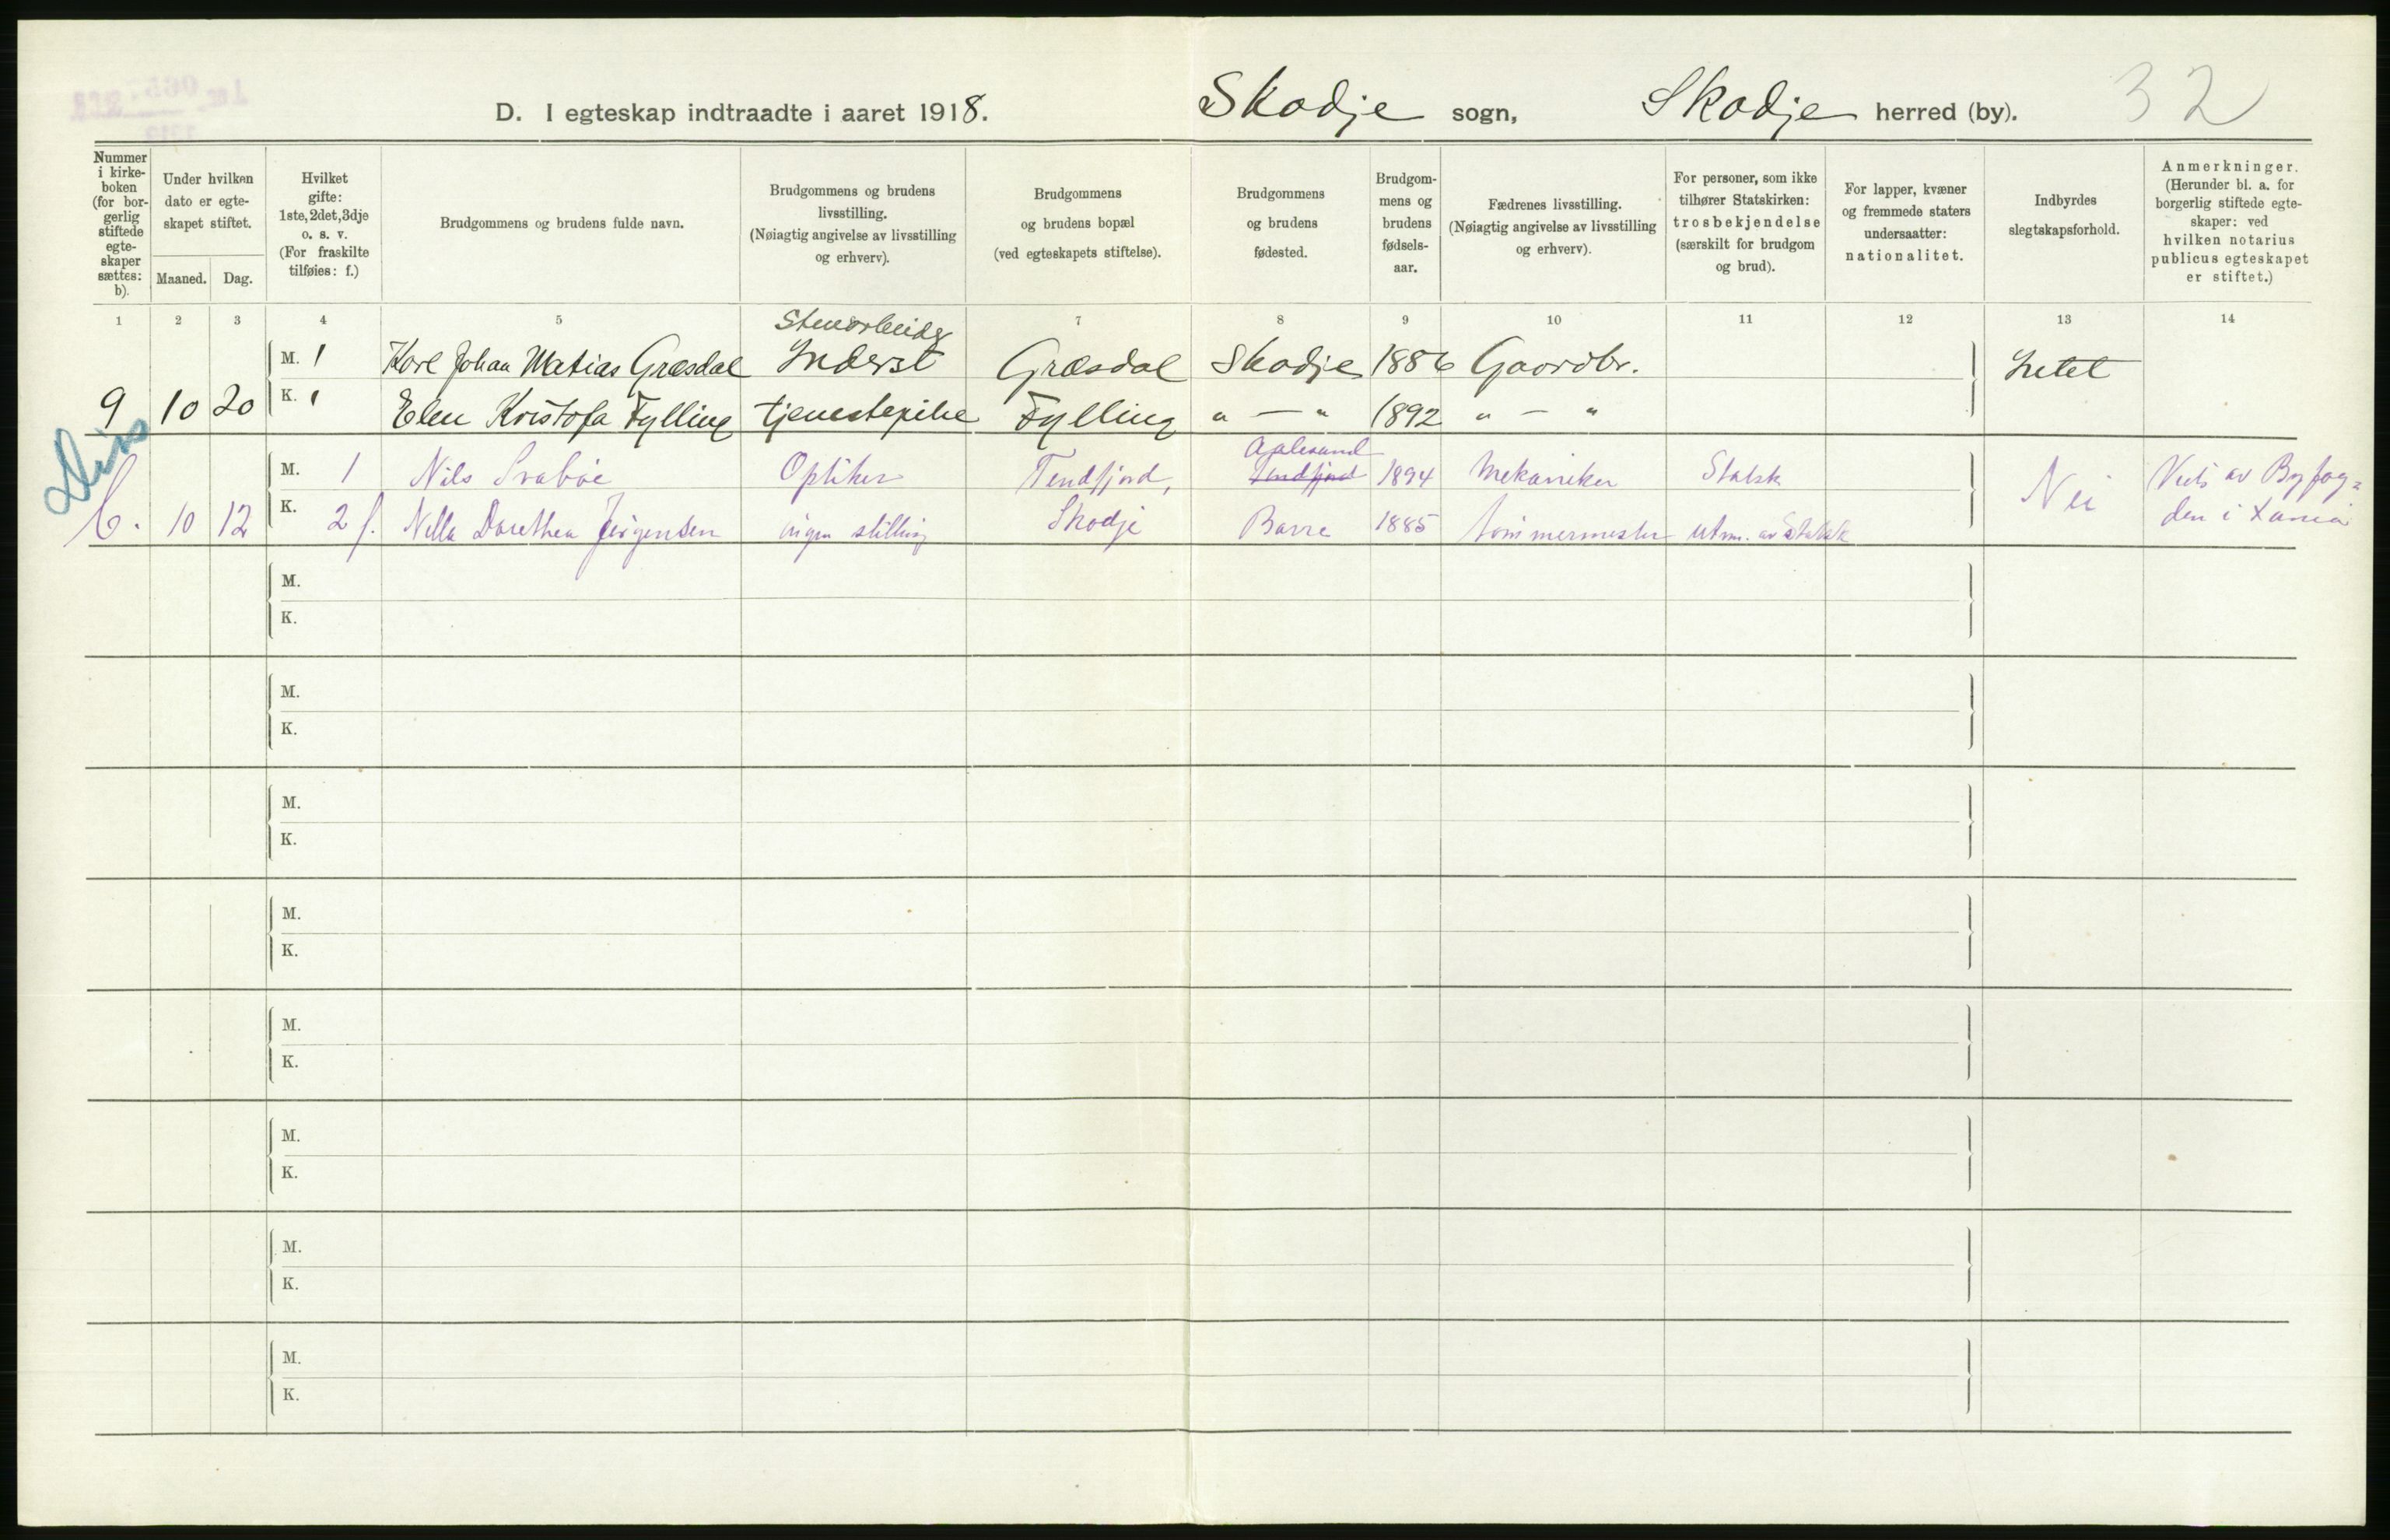 D. I egteskap indtraadte i aaret 1918. Skodje sogn, Skodje herred (by). 32
Nummer i kirke-boken (for bor-gerlig stiftede egte-skaper sættes: b).
Under hvilken dato er egte-skapet stiftet.
Maaned. Dag.
Hvilket gifte: 1ste, 2det, 3dje o. s. v. (For fraskilte tilføies: f.)
Brudgommens og brudens fulde navn.
Brudgommens og brudens livsstilling. (Nøiagtig angivelse av livsstilling og erhverv).
Brudgommens og brudens bopæl (ved egteskapets stiftelse).
Brudgommens og brudens fødested.
Brudgom-mens og brudens fødsels-aar.
Fædrenes livsstilling. (Nøiagtig angivelse av livsstilling og erhverv).
For personer, som ikke tilhører Statskirken: trosbekjendelse (særskilt for brudgom og brud).
For lapper, kvæner og fremmede staters undersaatter: nationalitet.
Indbyrdes slegtskapsforhold.
Anmerkninger. (Herunder bl. a. for borgerlig stiftede egte-skaper: ved hvilken notarius publicus egteskapet er stiftet.)
1 2 3 4 5 6 7 8 9 10 11 12 13 14
Stenarbeider
M. 1 Karl Johan Matias Græsdal Inderst Græsdal Skodje 1886 Gaardbr. Intet
9 10 20 K. 1 Elen Kristofa Fylling tjenestepike Fylling " — " 1892 " — "
Aalesund
M. 1 Nils Svabøe Optiker Tendfjord, Tendfjord 1894 Mekaniker Statsk Nei Viet av Byfog=
b. 10 12 K. 2 f. Nella Dorethea Jørgensen ingen stilling Skodje Borre 1885 tømmermester utm. av Statsk den i
M.
K.
M.
K.
M.
K.
M.
K.
M.
K.
M.
K.
M.
K.
M.
K.